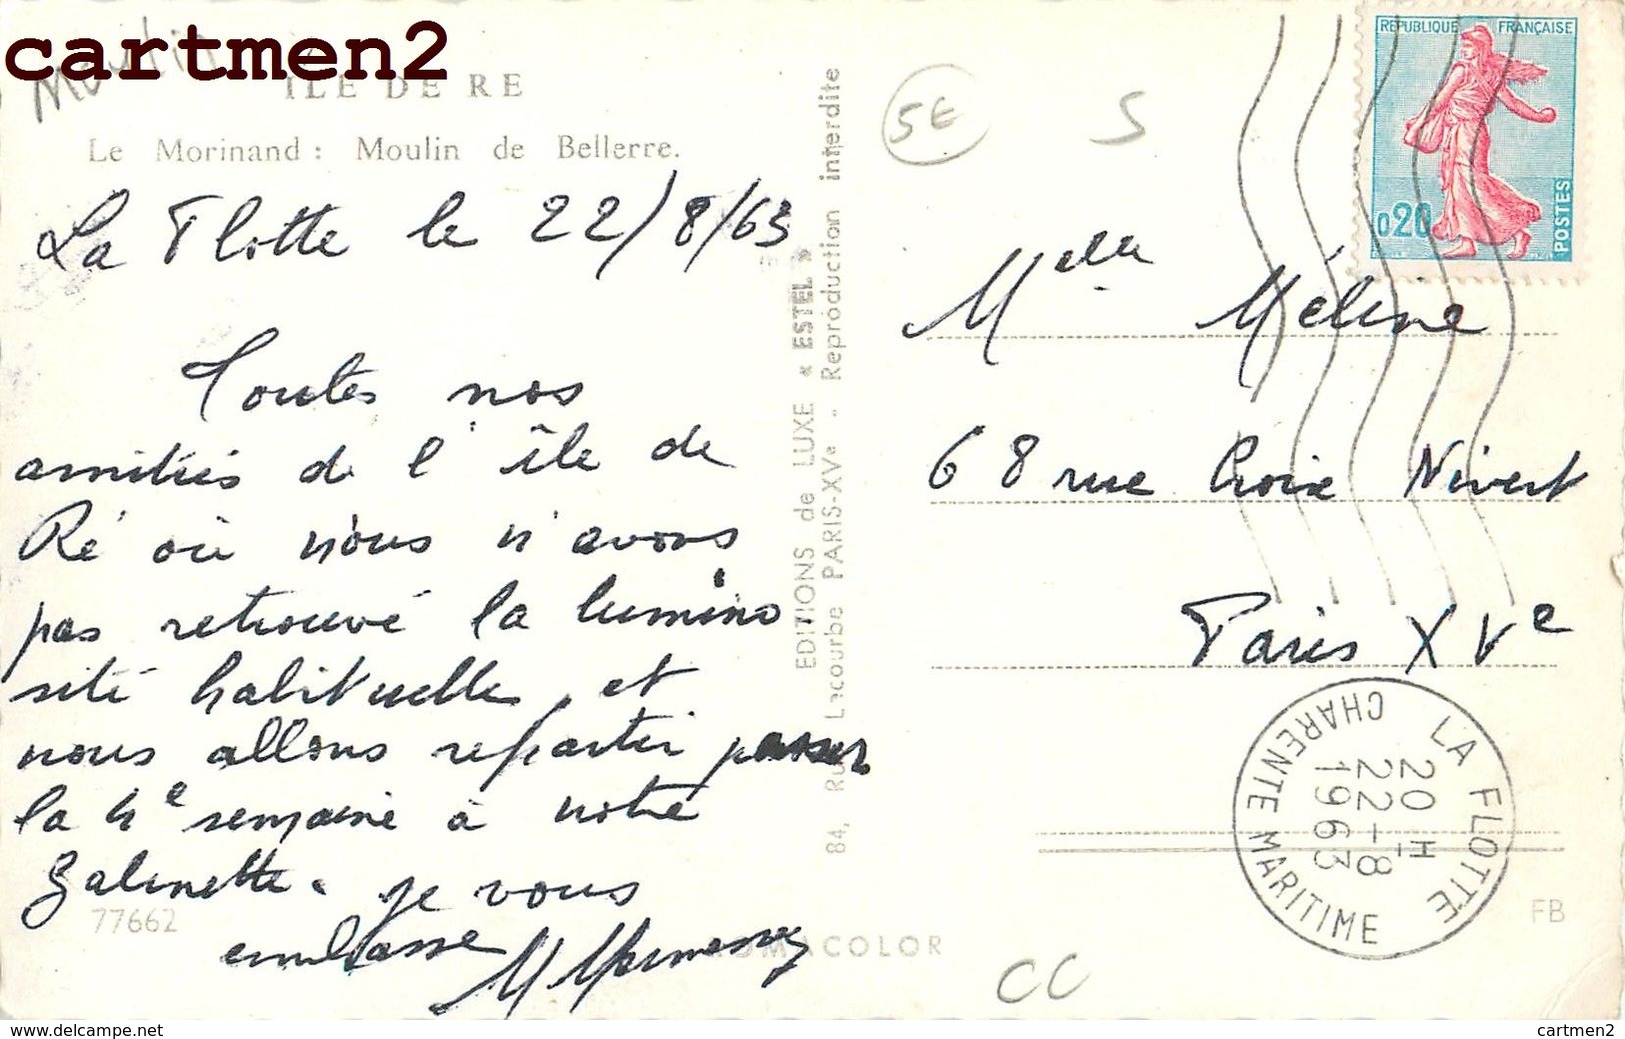 cartmen2
ILE DE RE
Le Morinand : Moulin de Bellerre.
La Flotte le 22/8/63
Toutes nos
amitiés de l'île de
Ré où nous n'avons
pas retrouvé la lumino
sité habituelle et
nous allons repartir passer
la 4e semaine à notre
Galinette. je vous
embrasse
77662
EDITIONS de LUXE « ESTEL »
84, Rue Lecourbe PARIS-XVe - Reproduction interdite
5E
S
REPUBLIQUE FRANÇAISE
0,20
POSTES
Melle Méline
68 rue Croix Nivert
Paris XVe
LA FLOTTE
20 H
22-8
1963
CHARENTE MARITIME
FB
OMACOLOR
CC
www.delcampe.net
cartmen2